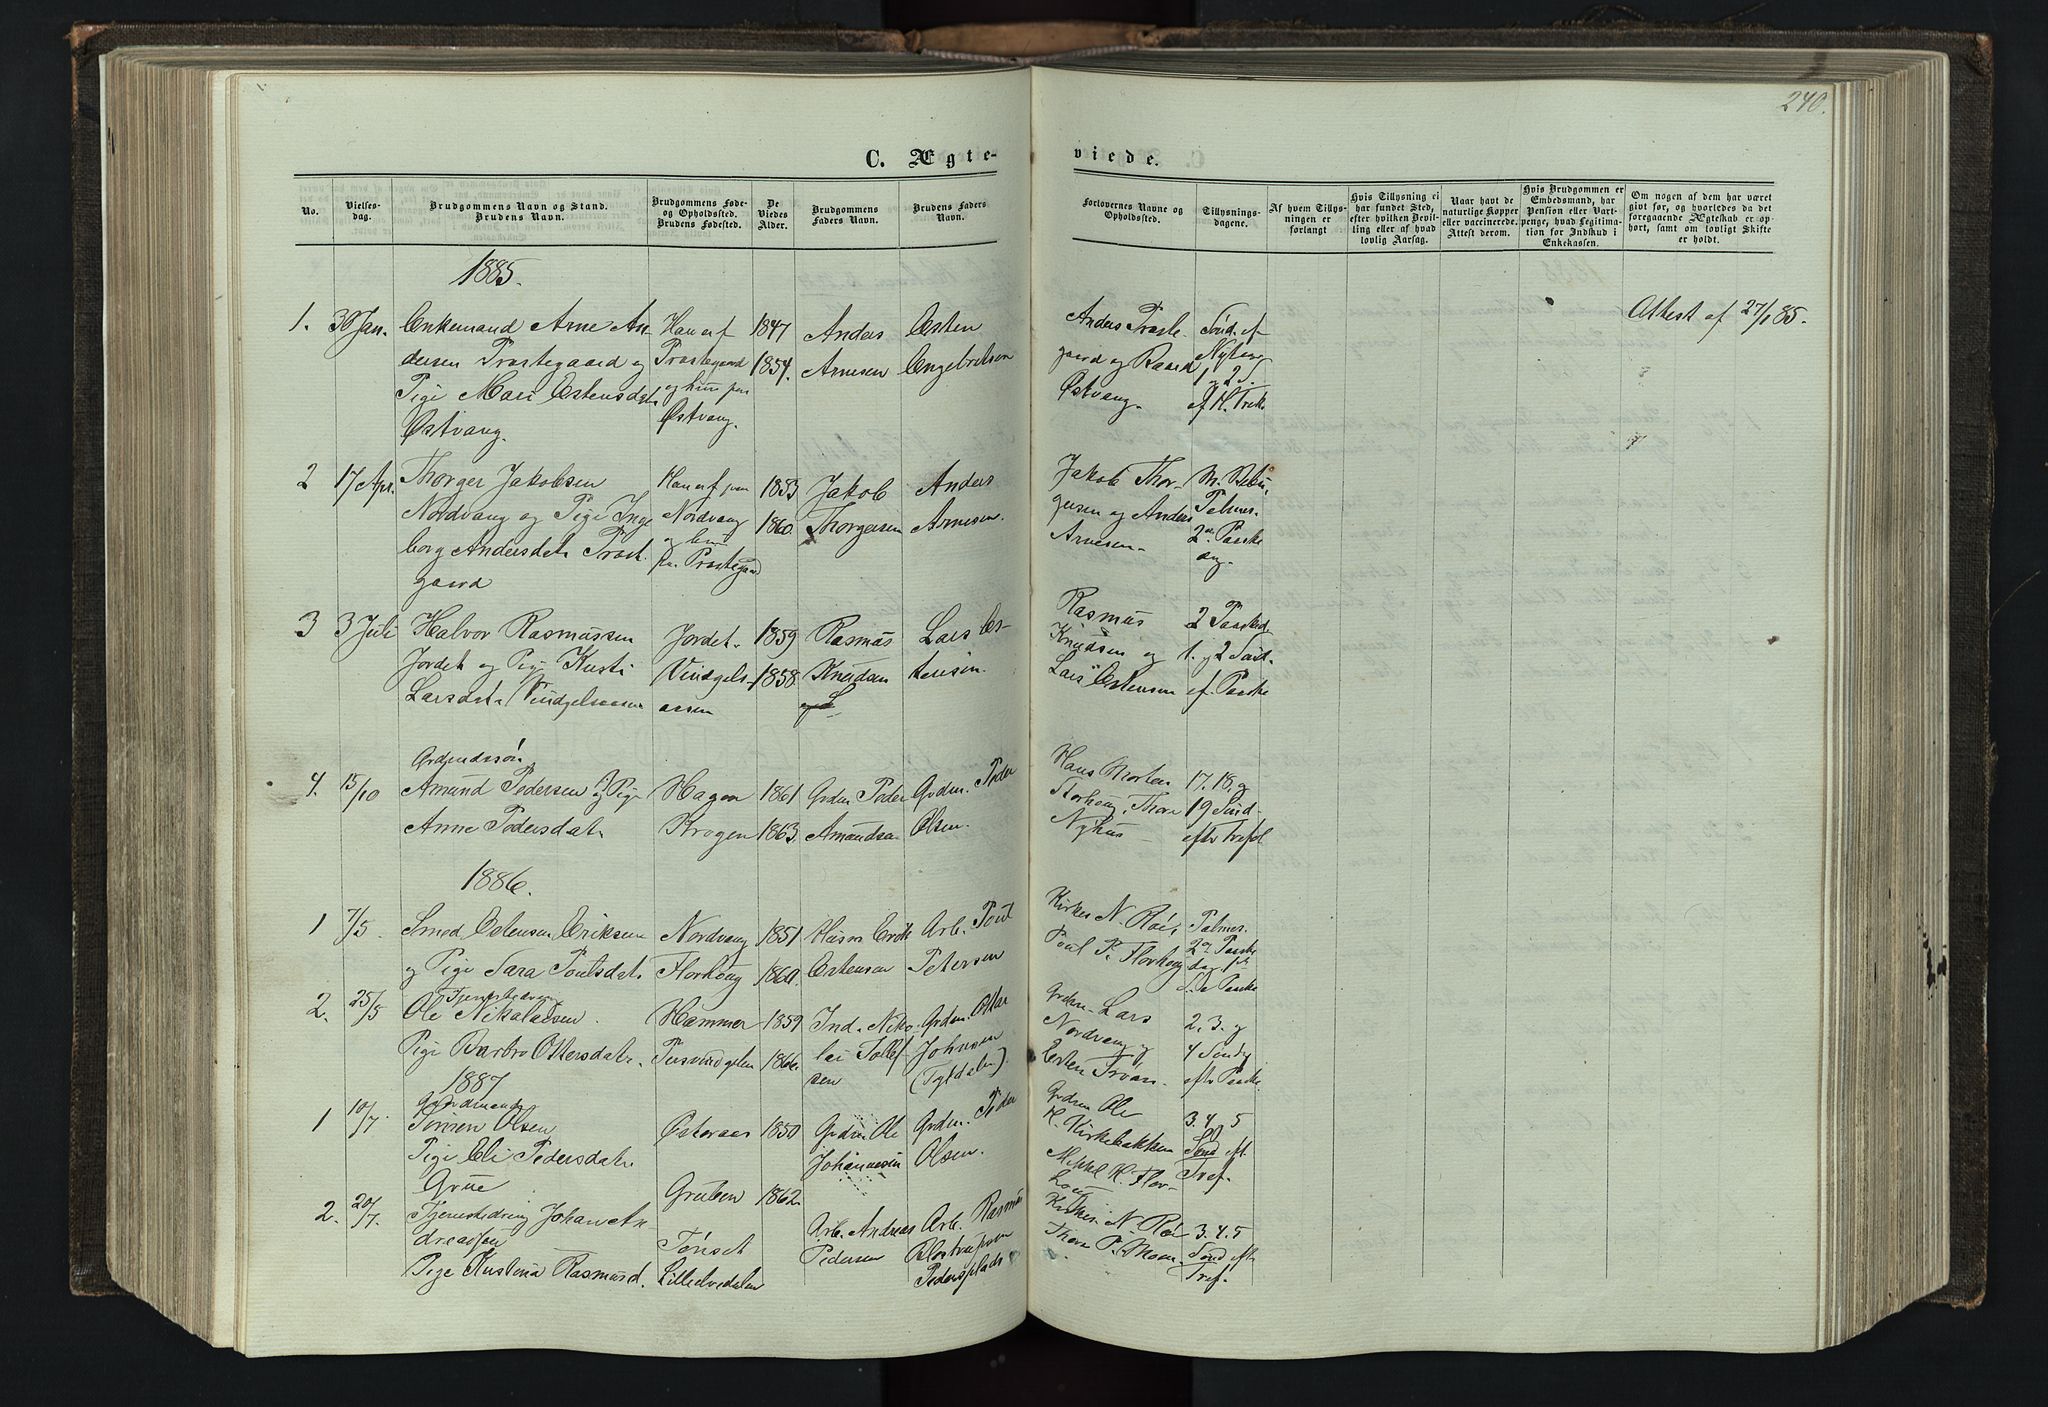 240.
C. Ægte-
viede.
No.
Vielses-
dag.
Brudgommens Navn og Stand.
Brudens Navn.
Brudgommens Føde-
og Opholdssted.
Brudens Fødested.
De
Viedes
Alder.
Brudgommens
Faders Navn.
Brudens Faders
Navn.
Forlovernes Navne og
Opholdssted.
Tillysnings-
dagene.
Af hvem Tillys-
ningen er
forlangt
Hvis Tillysning ei
har fundet Sted,
efter hvilken Bevil-
ling eller af hvad
lovlig Aarsag.
Naar havt de
naturlige Kopper
eller vaccinerede.
Attest derom.
Hvis Brudgommen er
Embedsmand, har
Pension eller Vart-
penge, hvad Legitima-
tion for Indskud i
Enkekassen.
Om nogen af dem har været
givt før, og hvorledes da det
foregaaende Ægteskab er op-
hørt, samt om lovligt Skifte
er holdt.
1885.
1.
30 Jan.
Enkemand Arne An-
dersen Præstegaard og
Pige Mari Estensdatr
Østvang.
Han af
Præstegaard
og hun paa
Østvang.
1847
1854.
Anders
Arnesen
Esten
Engebretsen
Anders Præste-
gaard og Baard
Østvang.
Sønd. ef
Nytaar
1 og 2 S.
ef H. Trek.
Attest af 27/1 85.
2
17 Apr.
Thorger Jakobsen
Nordvang og Pige Inge
borg Andersdatr Præst-
gaard
Han af paa
Nordvang
og hun
paa Præstegaard
1853
1860.
Jakob
Thorgersen
Anders
Arnesen.
Jakob Thor-
gersen og Anders
Arnesen.
M. Bebu,
Palmes.
2den Paaske
dag.
3
3 Juli
Halvor Rasmussen
Jordet og Pige Kirsti
Larsdatr Vindgelsaasen
Jordet.
Vindgels-
aasen
1859
1858
Rasmus
Knudsen
Lars Es-
tensen.
Rasmus
Knudsen og
Lars Estensen
2 Paasked.
1. og 2 Sønd.
ef. Paaske
4.
15/10
Grdmandssøn
Amund Pedersen og Pige
Anne Pedersdatr
Hagen
Krogen
1861
1863.
Grdm. Peder
Amundsen
Grdm. Peder
Olsen.
Hans Morten
Storhaug, Thore
Nyhus
17. 18. og
19 Sønd-
efter Trefol
1886.
1
7/5.
Smed Estensen Eriksen
og Pige Sara Poulsdatr
Nordvang
Florhoug
1851
1860.
Husm Erik
Estensen
Arb. Poul
Petersen
Kirkes. N. Røe,
Poul P. Florhoug
Palmes.
2den Paaske
dag 1ste
S. e Paaske
2.
25/5
Tjenestedreng
Ole Nikolaisen.
Pige Barbro Ottersdatr.
Hammer
Tusvindgelen
1859
1866.
Ind. Niko-
lai Tollef-
sen
Grdm. Otter
Johnsen
(Tyldalen).
Grdm. Lars
Nordvang og
Esten Trøan.
2, 3. og
4 Søndg
efter Paaske.
1887
1
10/7.
Gaardmand
Simen Olsen
Pige Eli Pedersdatr
Grue
Østeraas
Gruben
1850
1862.
Grdm. Ole
Johannesen
Grdm. Peder
Olsen.
Grdm Ole
H. Kirkebakken
Mikkel H. Flor-
houg
3. 4. og 5
Sønd eft.
Tref.
2.
20/7.
Tjenestedreng Johan An
dreassen
Pige Kristina Rasmusd.
Tønset
Lilleelvedalen
Arb. Andreas
Pedersen
Arb. Rasmus
Pedersplads
Kirkes. N. Røe
Thore P. Moen.
3. 4. 5
Sønd efter
Tref.